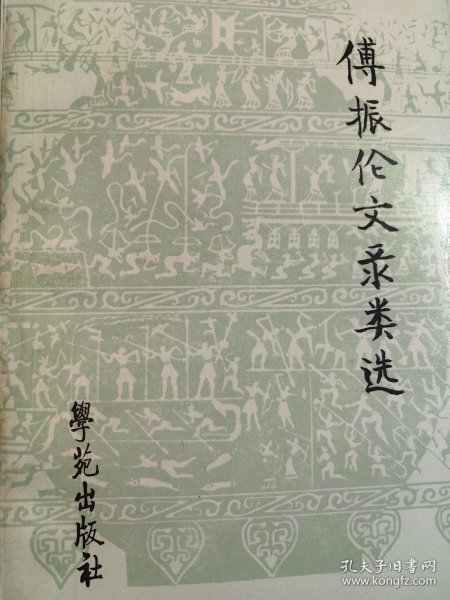 傅振伦文录类选
學苑出版社
孔夫子旧书网
www.kongfz.com